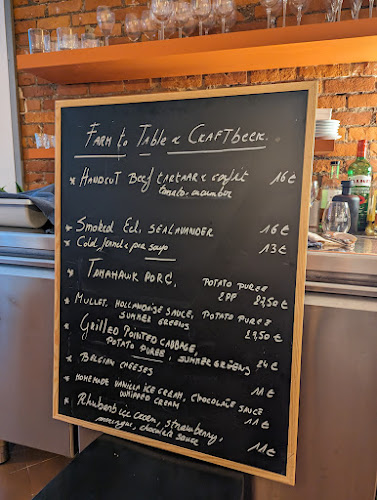 FARM to TABLE & CRAFTbeer.
* HANDCUT Beef tartaar & confit 16€
tomato-cucumber
* Smoked Eel, SEALAVANDER 16€
* Cold fennel & pea soup 13€
* TOMAHAWK PORC, POTATO PUREE
2PP 27,50€
* MULLET, HOLLANDAISE SAUCE, POTATO PUREE
SUMMER GREENS 27,50€
* GRilled POINTED CABBAGE,
POTATO PUREE, SUMMER GREENS 24€
* BELGIAN CHEESES
* HOMEMADE VANILLA ICE CREAM, CHOCOLATE SAUCE 11€
WHIPPED CREAM 11€
* Rhubarb ice cream, strawberry,
meringue, chocolate sauce 11€